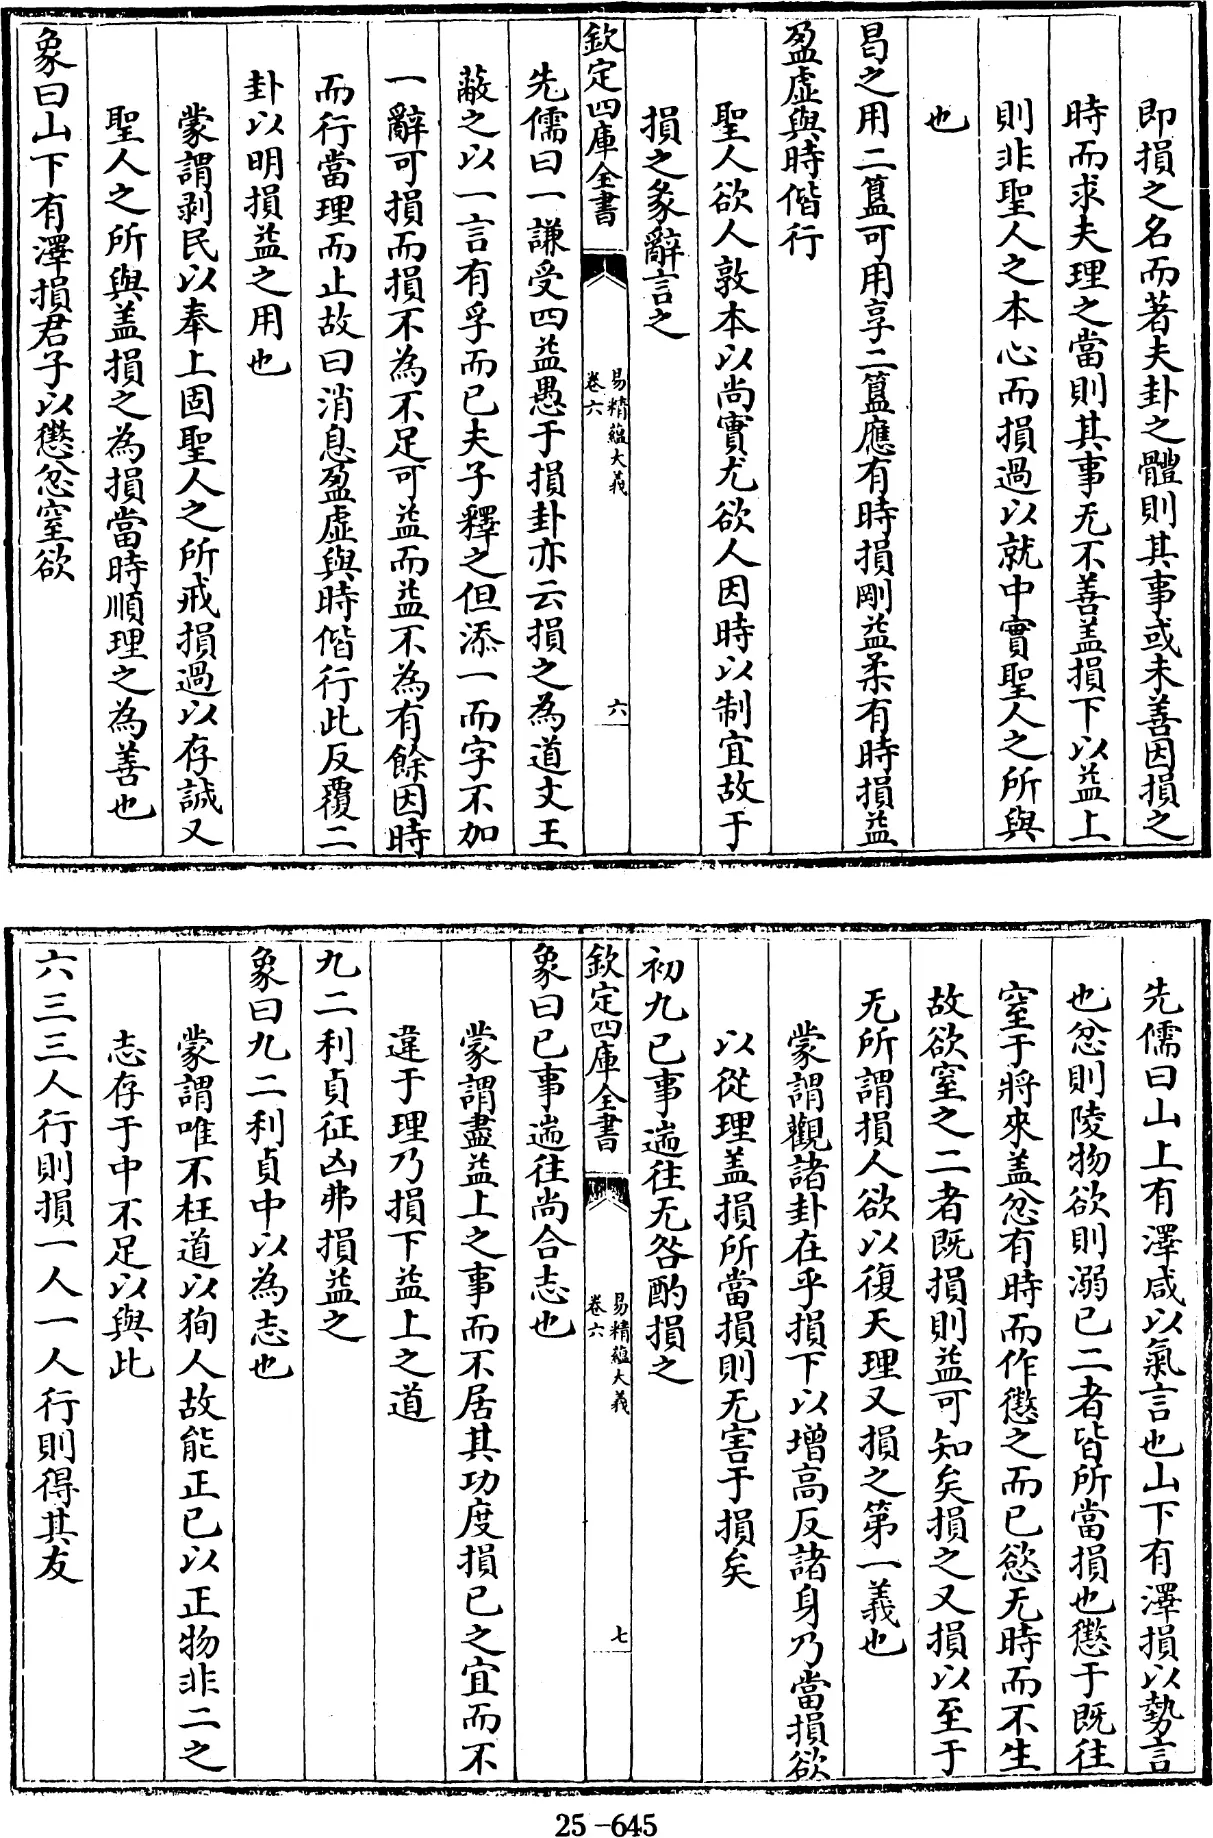 即損之名而著夫卦之體則其事或未善因損之
時而求夫理之當則其事无不善盖損下以益上
則非聖人之本心而損過以就中實聖人之所與
也
曷之用二簋可用享二簋應有時損剛益柔有時損益
盈虛與時偕行
聖人欲人敦本以尚實尤欲人因時以制宜故于
損之彖辭言之
欽定四庫全書
易精蘊大義
卷六
六
先儒曰一謙受四益愚于損卦亦云損之為道文王
蔽之以一言有孚而已夫子釋之但添一而字不加
一辭可損而損不為不足可益而益不為有餘因時
而行當理而止故曰消息盈虛與時偕行此反覆二
卦以明損益之用也
蒙謂剥民以奉上固聖人之所戒損過以存誠又
聖人之所與盖損之為損當時順理之為善也
象曰山下有澤損君子以懲忿窒欲
先儒曰山上有澤咸以氣言也山下有澤損以勢言
也忿則陵物欲則溺已二者皆所當損也懲于既往
窒于將來盖忿有時而作懲之而已慾无時而不生
故欲窒之二者既損則益可知矣損之又損以至于
无所謂損人欲以復天理又損之第一義也
蒙謂觀諸卦在乎損下以增高反諸身乃當損欲
以從理盖損所當損則无害于損矣
初九已事遄往无咎酌損之
欽定四庫全書
易精蘊大義
卷六
七
象曰已事遄往尚合志也
蒙謂盡益上之事而不居其功度損已之宜而不
違于理乃損下益上之道
九二利貞征凶弗損益之
象曰九二利貞中以為志也
蒙謂唯不枉道以狥人故能正已以正物非二之
志存于中不足以與此
六三三人行則損一人一人行則得其友
25-645